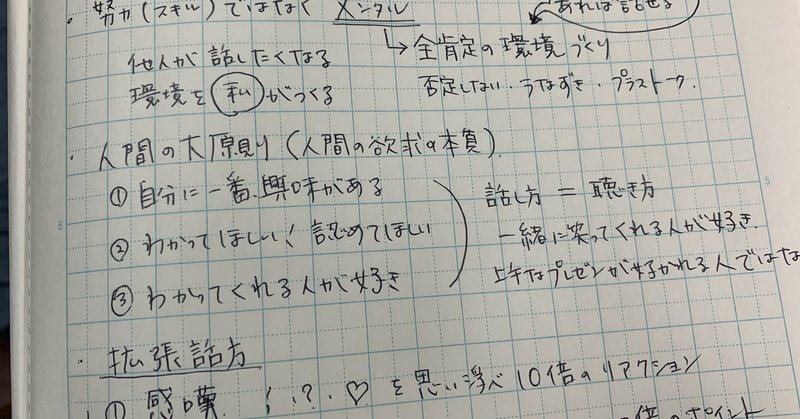 ・努力(スキル)ではなく メンタル
あれば話せる
↳ 全肯定の環境づくり
他人が話したくなる
環境を私がつくる
否定しない・うなずき・プラストーク.
・人間の大原則(人間の欲求の本質)
① 自分に一番興味がある
② わかってほしい！認めてほしい
③ わかってくれる人が好き
話し方 = 聴き方
一緒に笑ってくれる人が好き.
上手なプレゼンが好かれる人ではな
・拡張話方
① 感嘆 ！・？・♡ を思い浮べ10倍のリアクション
倍のポイント